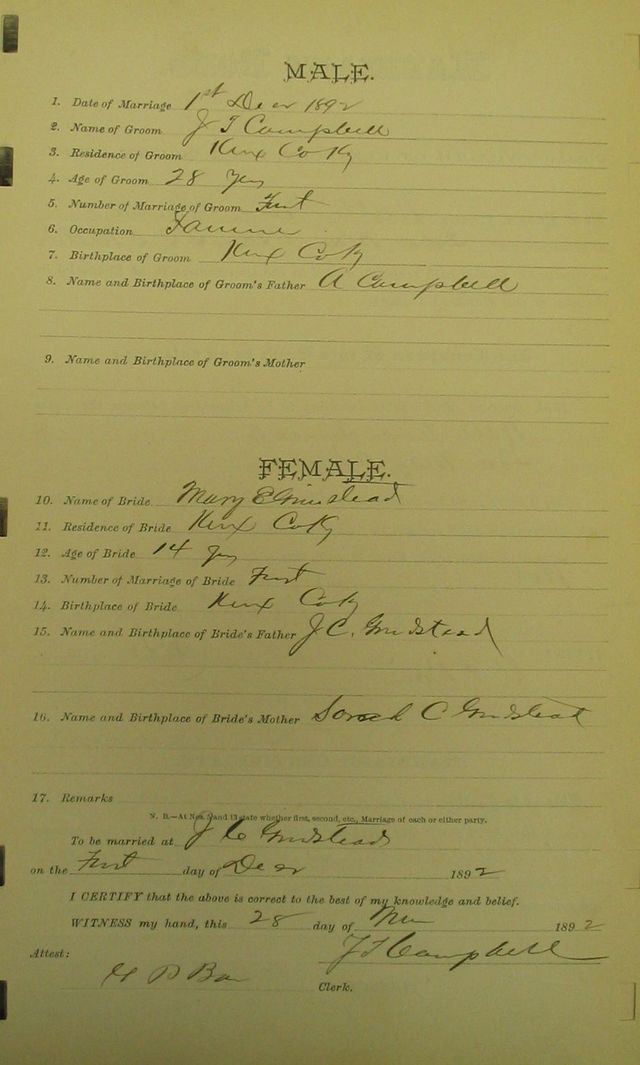 MALE.
1. Date of Marriage 1st Decr 1892
2. Name of Groom J T Campbell
3. Residence of Groom Knox Co Ky
4. Age of Groom 28 yrs
5. Number of Marriage of Groom First
6. Occupation Farmer
7. Birthplace of Groom Knox Co Ky
8. Name and Birthplace of Groom's Father A Campbell
9. Name and Birthplace of Groom's Mother
FEMALE.
10. Name of Bride Mary E Grinstead
11. Residence of Bride Knox Co Ky
12. Age of Bride 14 yrs
13. Number of Marriage of Bride First
14. Birthplace of Bride Knox Co Ky
15. Name and Birthplace of Bride's Father J C. Grinstead
16. Name and Birthplace of Bride's Mother C Grinstead
17. Remarks
N. B.—At Nos. 5 and 13 state whether first, second, etc., Marriage of each or either party.
To be married at J C Grinstead
on the First day of Decr 1892
I CERTIFY that the above is correct to the best of my knowledge and belief.
WITNESS my hand, this 28 day of Nov 1892
J T Campbell
Attest:
Clerk.